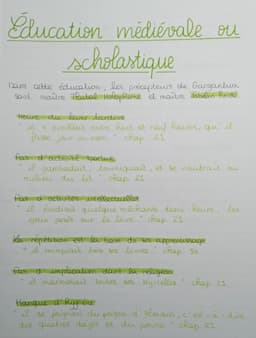 Éducation médiévale ou
scholastique
Dans cette éducation, les précepteurs de Gargantua
sont maître Thubal Holoferne et maître Jobelin Bridé
Heure du lever tardive
"il s'éveillait entre huit et neuf heures, qu'il
jour ou non" chap 21
Pas d'activité
"il gambadait, et se vautrait au
milieu du lit" chap 21
Pas d'activités intellectuelles
"il étudiait quelque méchante demi-heure, les
yeux posés sur le livre" chap 21
La répétition est la base de son apprentissage
livres" chap
Pas d'implication dans la religion
"il marmonnait toutes ses kyrielles" chap 21
Manque d'hygiène
"il se peignait du peigne d'Almain, c'est-à-dire
des quatre doigts et du pouce" chap 21